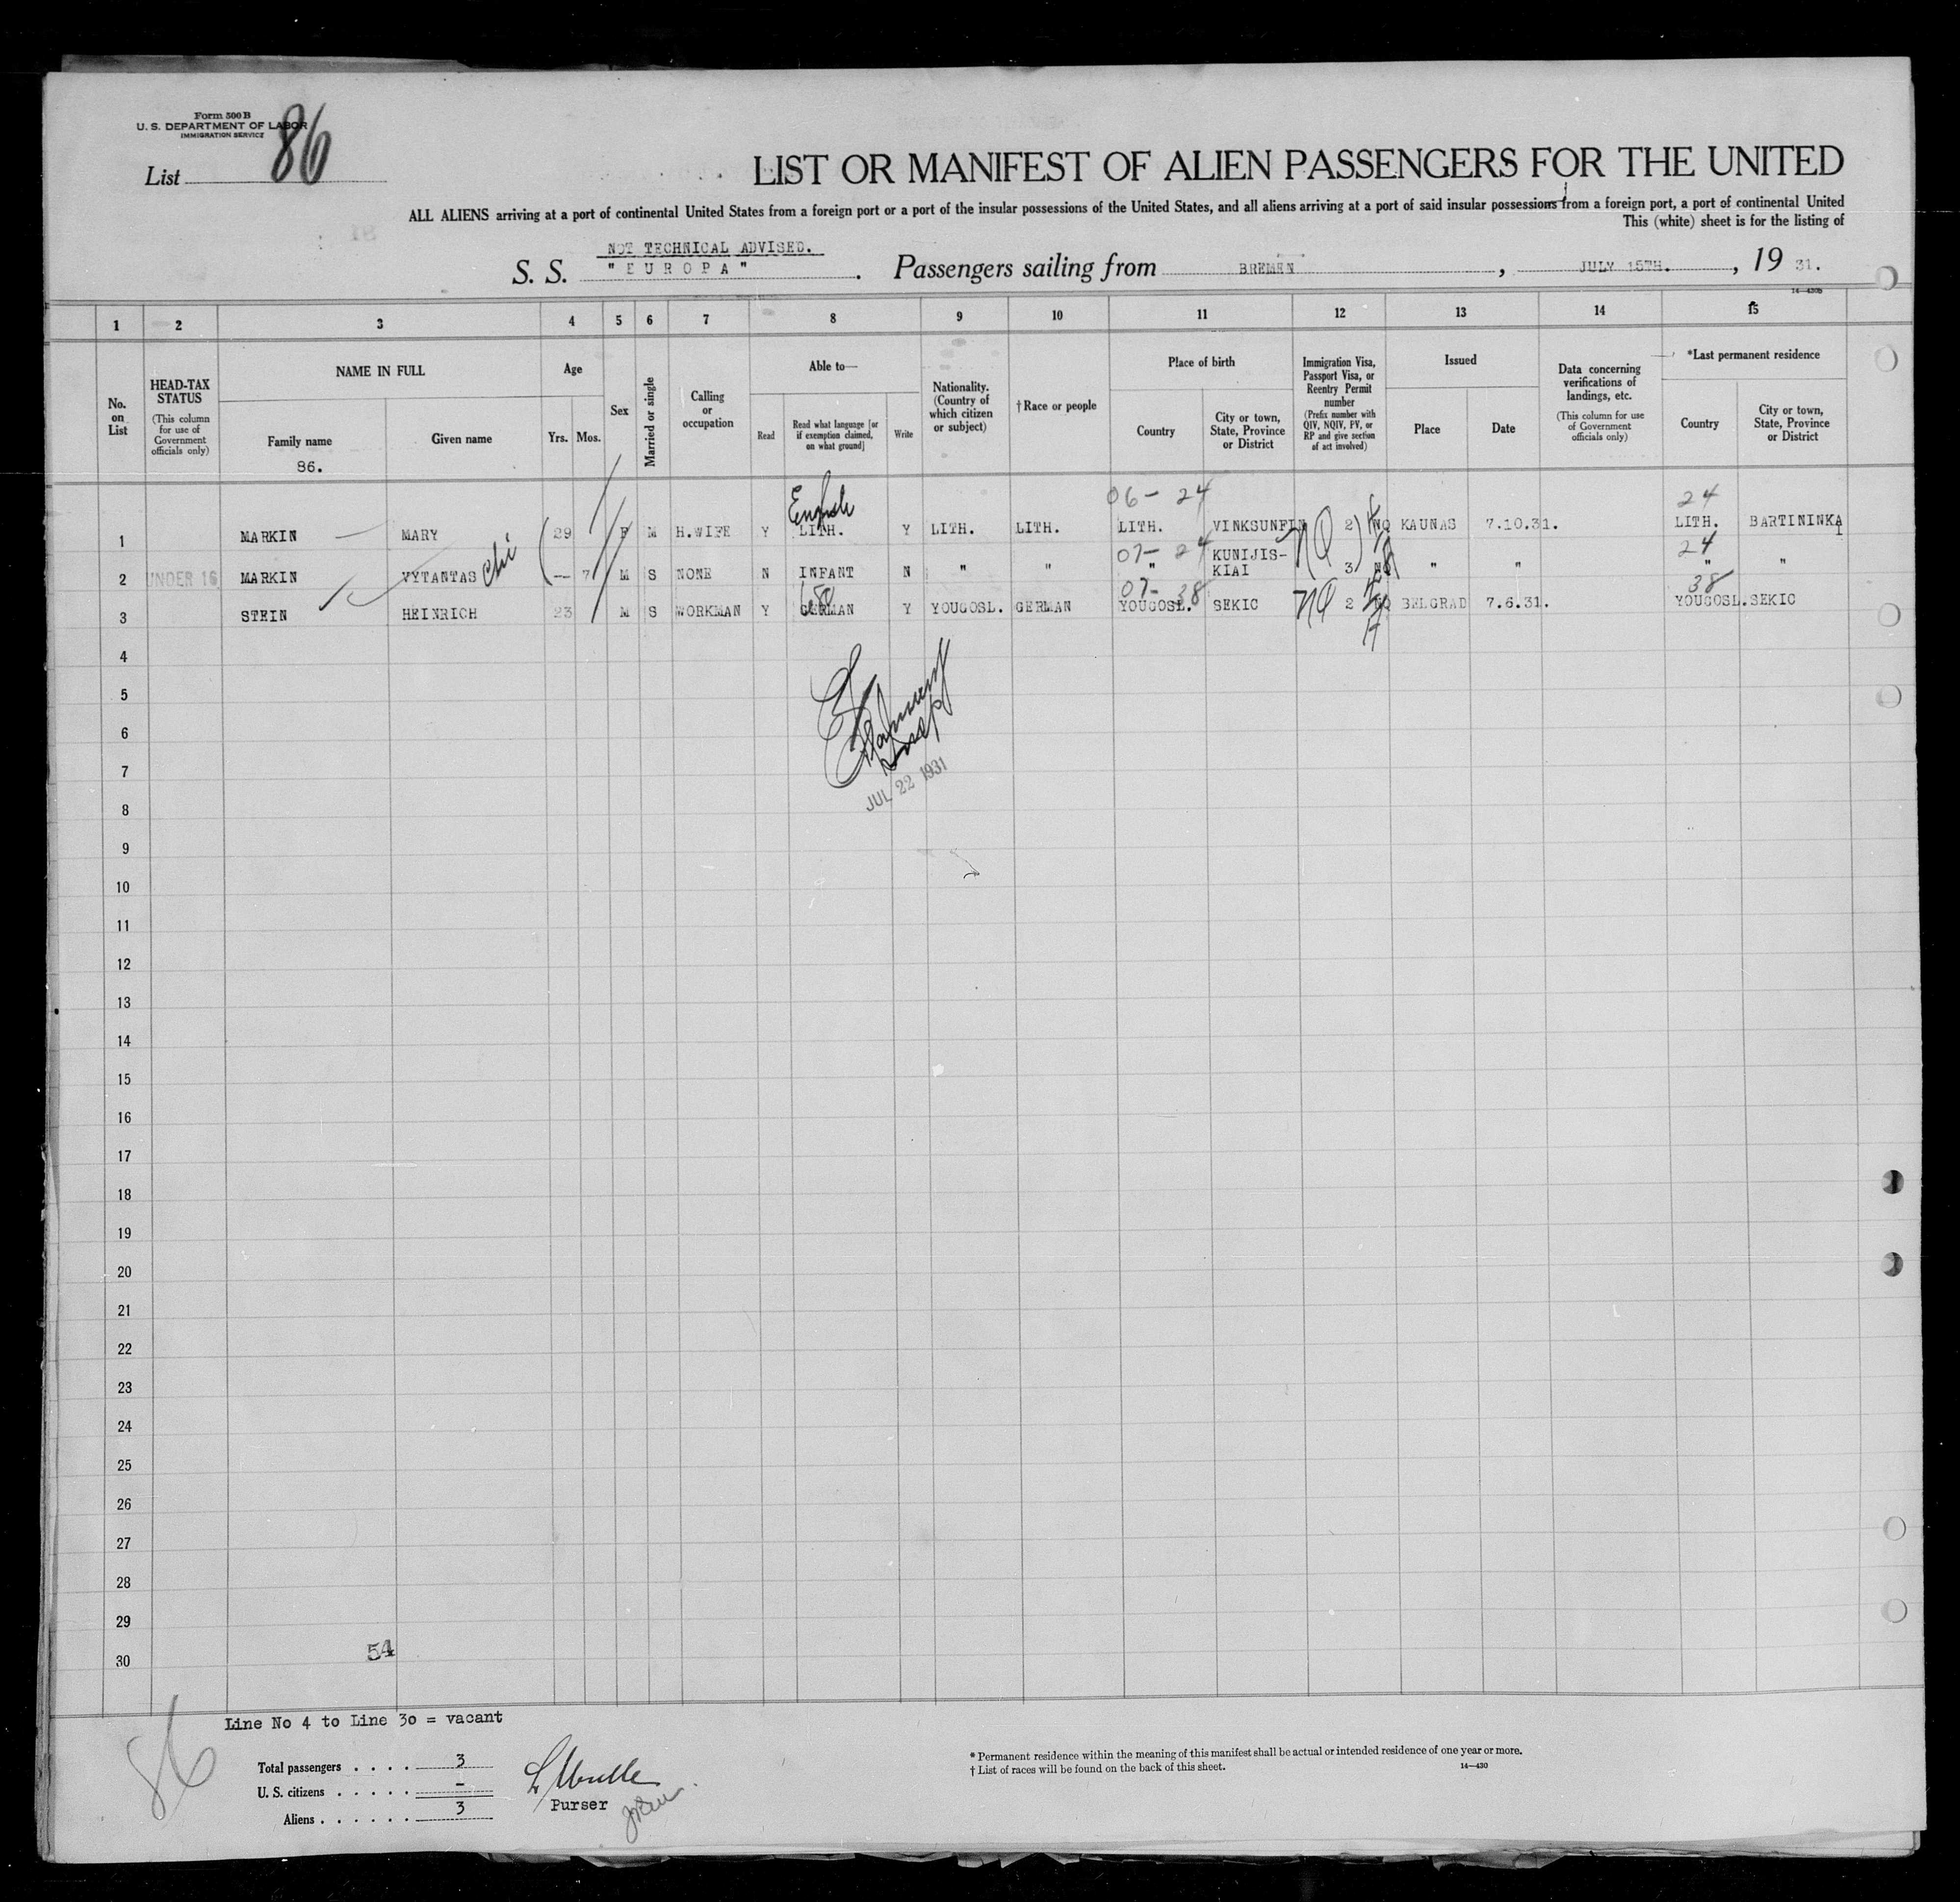 Form 500 B
U. S. DEPARTMENT OF LABOR
IMMIGRATION SERVICE
List 86
LIST OR MANIFEST OF ALIEN PASSENGERS FOR THE UNITED
ALL ALIENS arriving at a port of continental United States from a foreign port or a port of the insular possessions of the United States, and all aliens arriving at a port of said insular possessions from a foreign port, a port of continental United
This (white) sheet is for the listing of
NOT TECHNICAL ADVISED.
S. S. "EUROPA". Passengers sailing from BREMEN, JULY 15TH., 19 31.
14-430b
1 2 3 4 5 6 7 8 9 10 11 12 13 14 15
No. on List
HEAD-TAX STATUS (This column for use of Government officials only)
NAME IN FULL
Family name
Given name
86.
Age
Yrs. Mos.
Sex
Married or single
Calling or occupation
Able to—
Read
Read what language [or if exemption claimed, on what ground]
Write
Nationality. (Country of which citizen or subject)
†Race or people
Place of birth
Country
City or town, State, Province or District
Immigration Visa, Passport Visa, or Reentry Permit number (Prefix number with QIV, NQIV, PV, or RP and give section of act involved)
Issued
Place
Date
Data concerning verifications of landings, etc. (This column for use of Government officials only)
*Last permanent residence
Country
City or town, State, Province or District
English 06- 24 24
1 MARKIN MARY 29 F M H.WIFE Y LITH. Y LITH. LITH. LITH. VINKSUNFIN NQ 2) NQ KAUNAS 7.10.31. LITH. BARTININKAI
07- 24 24
2 UNDER 16 MARKIN VYTANTAS — 7 M S NONE N INFANT N " " " KUNIJIS-KIAI 3 NQ " " " "
07- 38 38
3 STEIN HEINRICH 23 M S WORKMAN Y GERMAN Y YOUGOSL. GERMAN YOUGOSL. SEKIC NQ 2 NQ BELGRAD 7.6.31. YOUGOSL. SEKIC
4
5
6
7
JUL 22 1931
8
9
10
11
12
13
14
15
16
17
18
19
20
21
22
23
24
25
26
27
28
29
54
30
Line No 4 to Line 30 = vacant
86
Total passengers . . . . 3
U. S. citizens . . . . . —
Aliens . . . . . . 3
Purser
* Permanent residence within the meaning of this manifest shall be actual or intended residence of one year or more.
† List of races will be found on the back of this sheet.
14—430